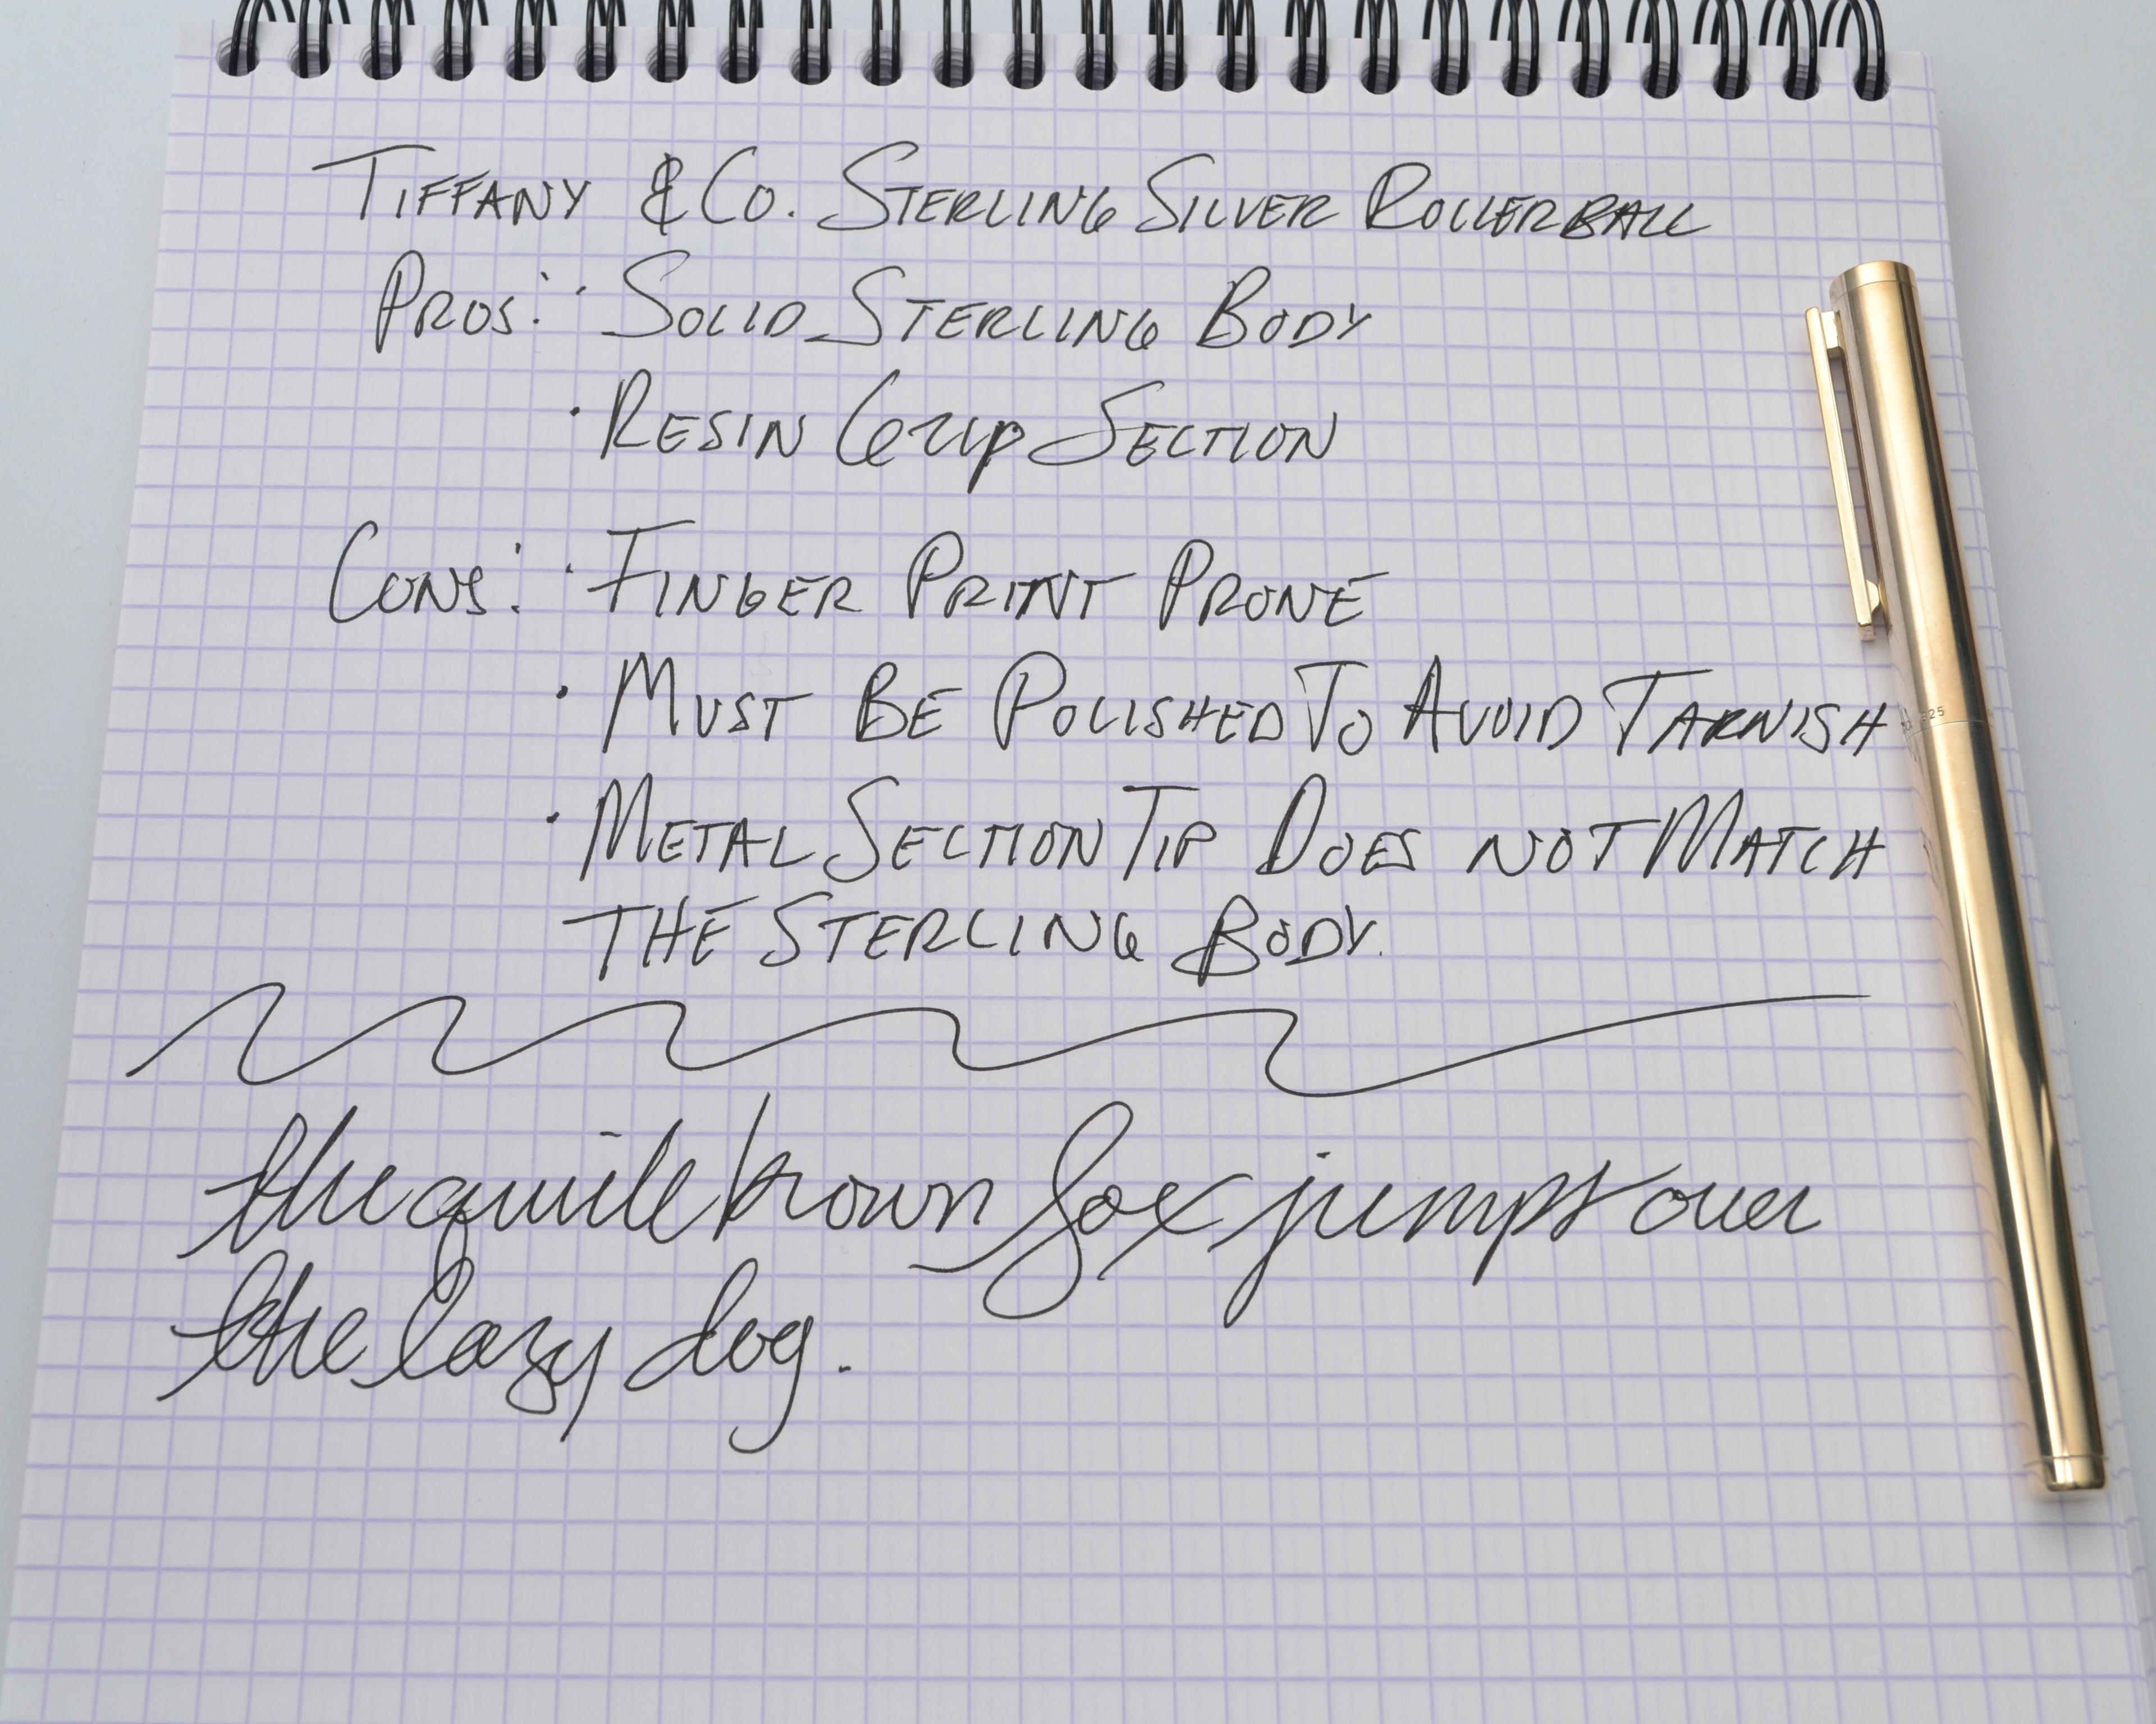 TIFFANY & CO. STERLING SILVER ROLLERBALL
PROS: · SOLID STERLING BODY
· RESIN GRIP SECTION
CONS: · FINGER PRINT PRONE
· MUST BE POLISHED TO AVOID TARNISH
· METAL SECTION TIP DOES NOT MATCH
THE STERLING BODY.
the quick brown fox jumps over
the lazy dog.
925